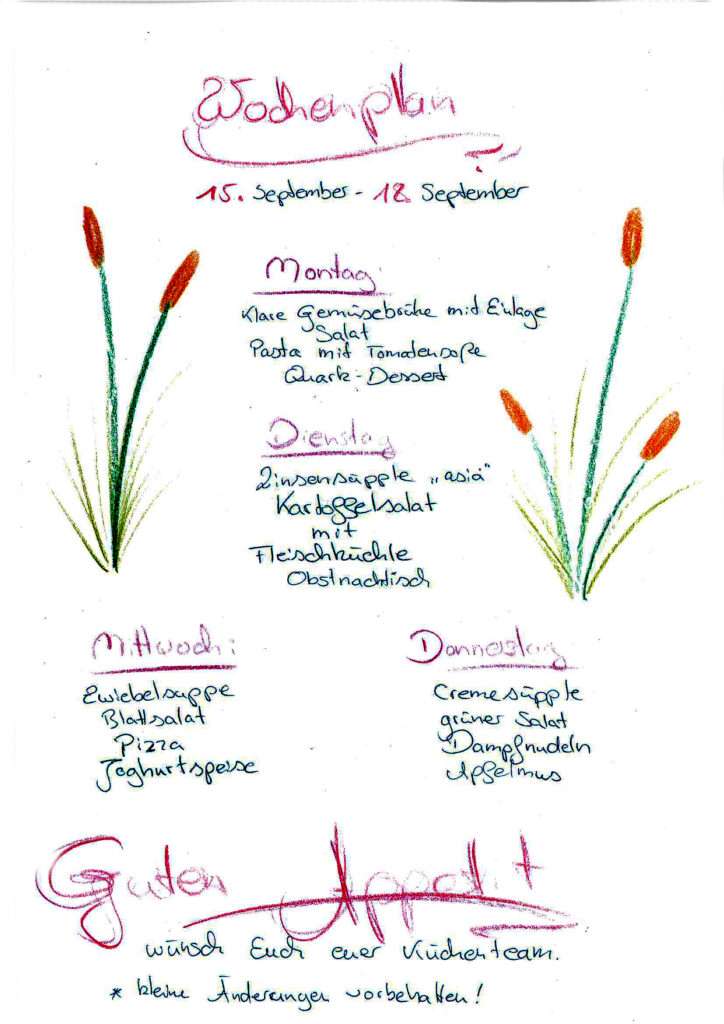 Wochenplan
15. September - 18. September
Montag:
Klare Gemüsebrühe mit Einlage
Salat
Pasta mit Tomatensoße
Quark-Dessert
Dienstag
Linsensüpple „asia"
Kartoffelsalat
mit
Fleischküchle
Obstnachtisch
Mittwoch:
Zwiebelsuppe
Blattsalat
Pizza
Joghurtspeise
Donnerstag
Cremesüpple
grüner Salat
Dampfnudeln
Apfelmus
Guten Appetit
wünsch Euch euer Küchenteam.
* kleine Änderungen vorbehalten!